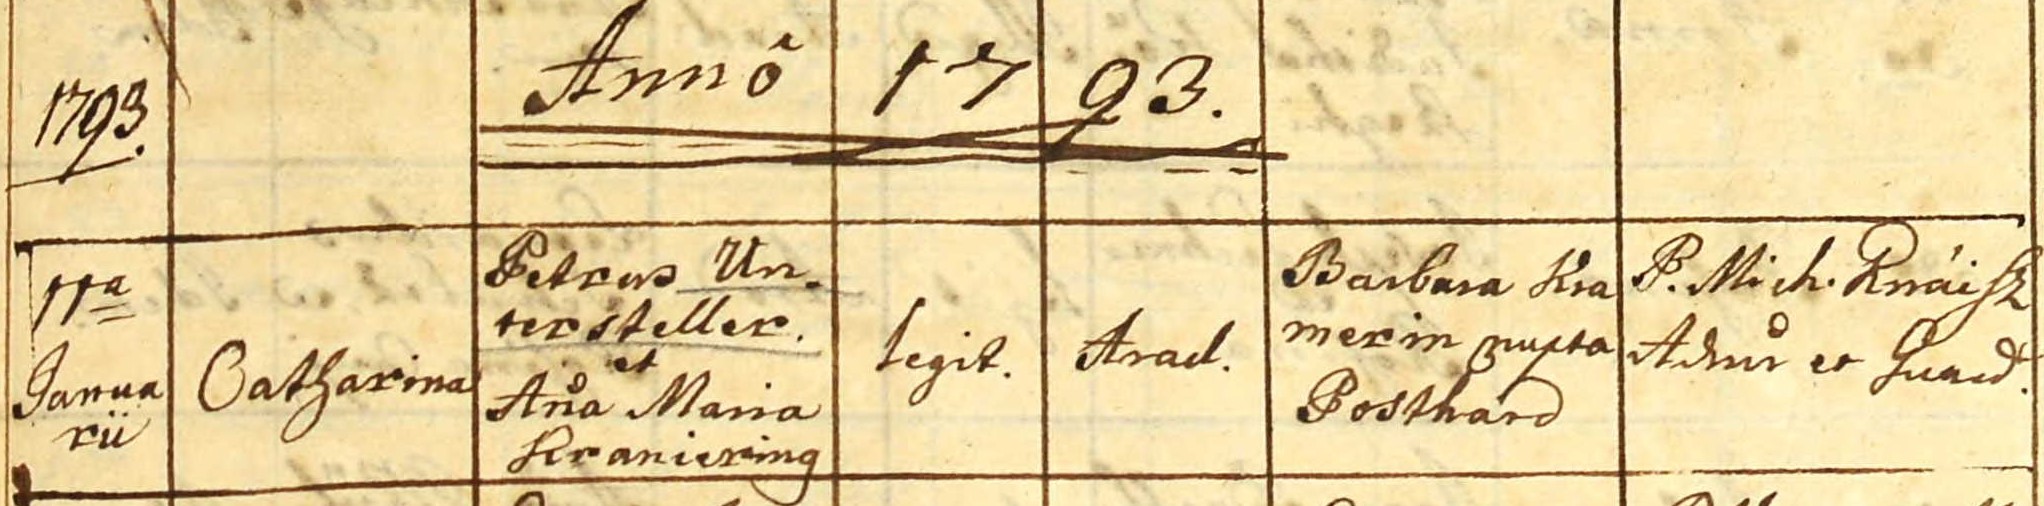 1793.
Annô 1793.
11a
Janua
rii
Catharina
Petrus Un-
tersteller.
et
Aña Maria
Kraniering
legit.
Arad.
Barbara Kra
merin nupta
Posthard
P. Mich.
et